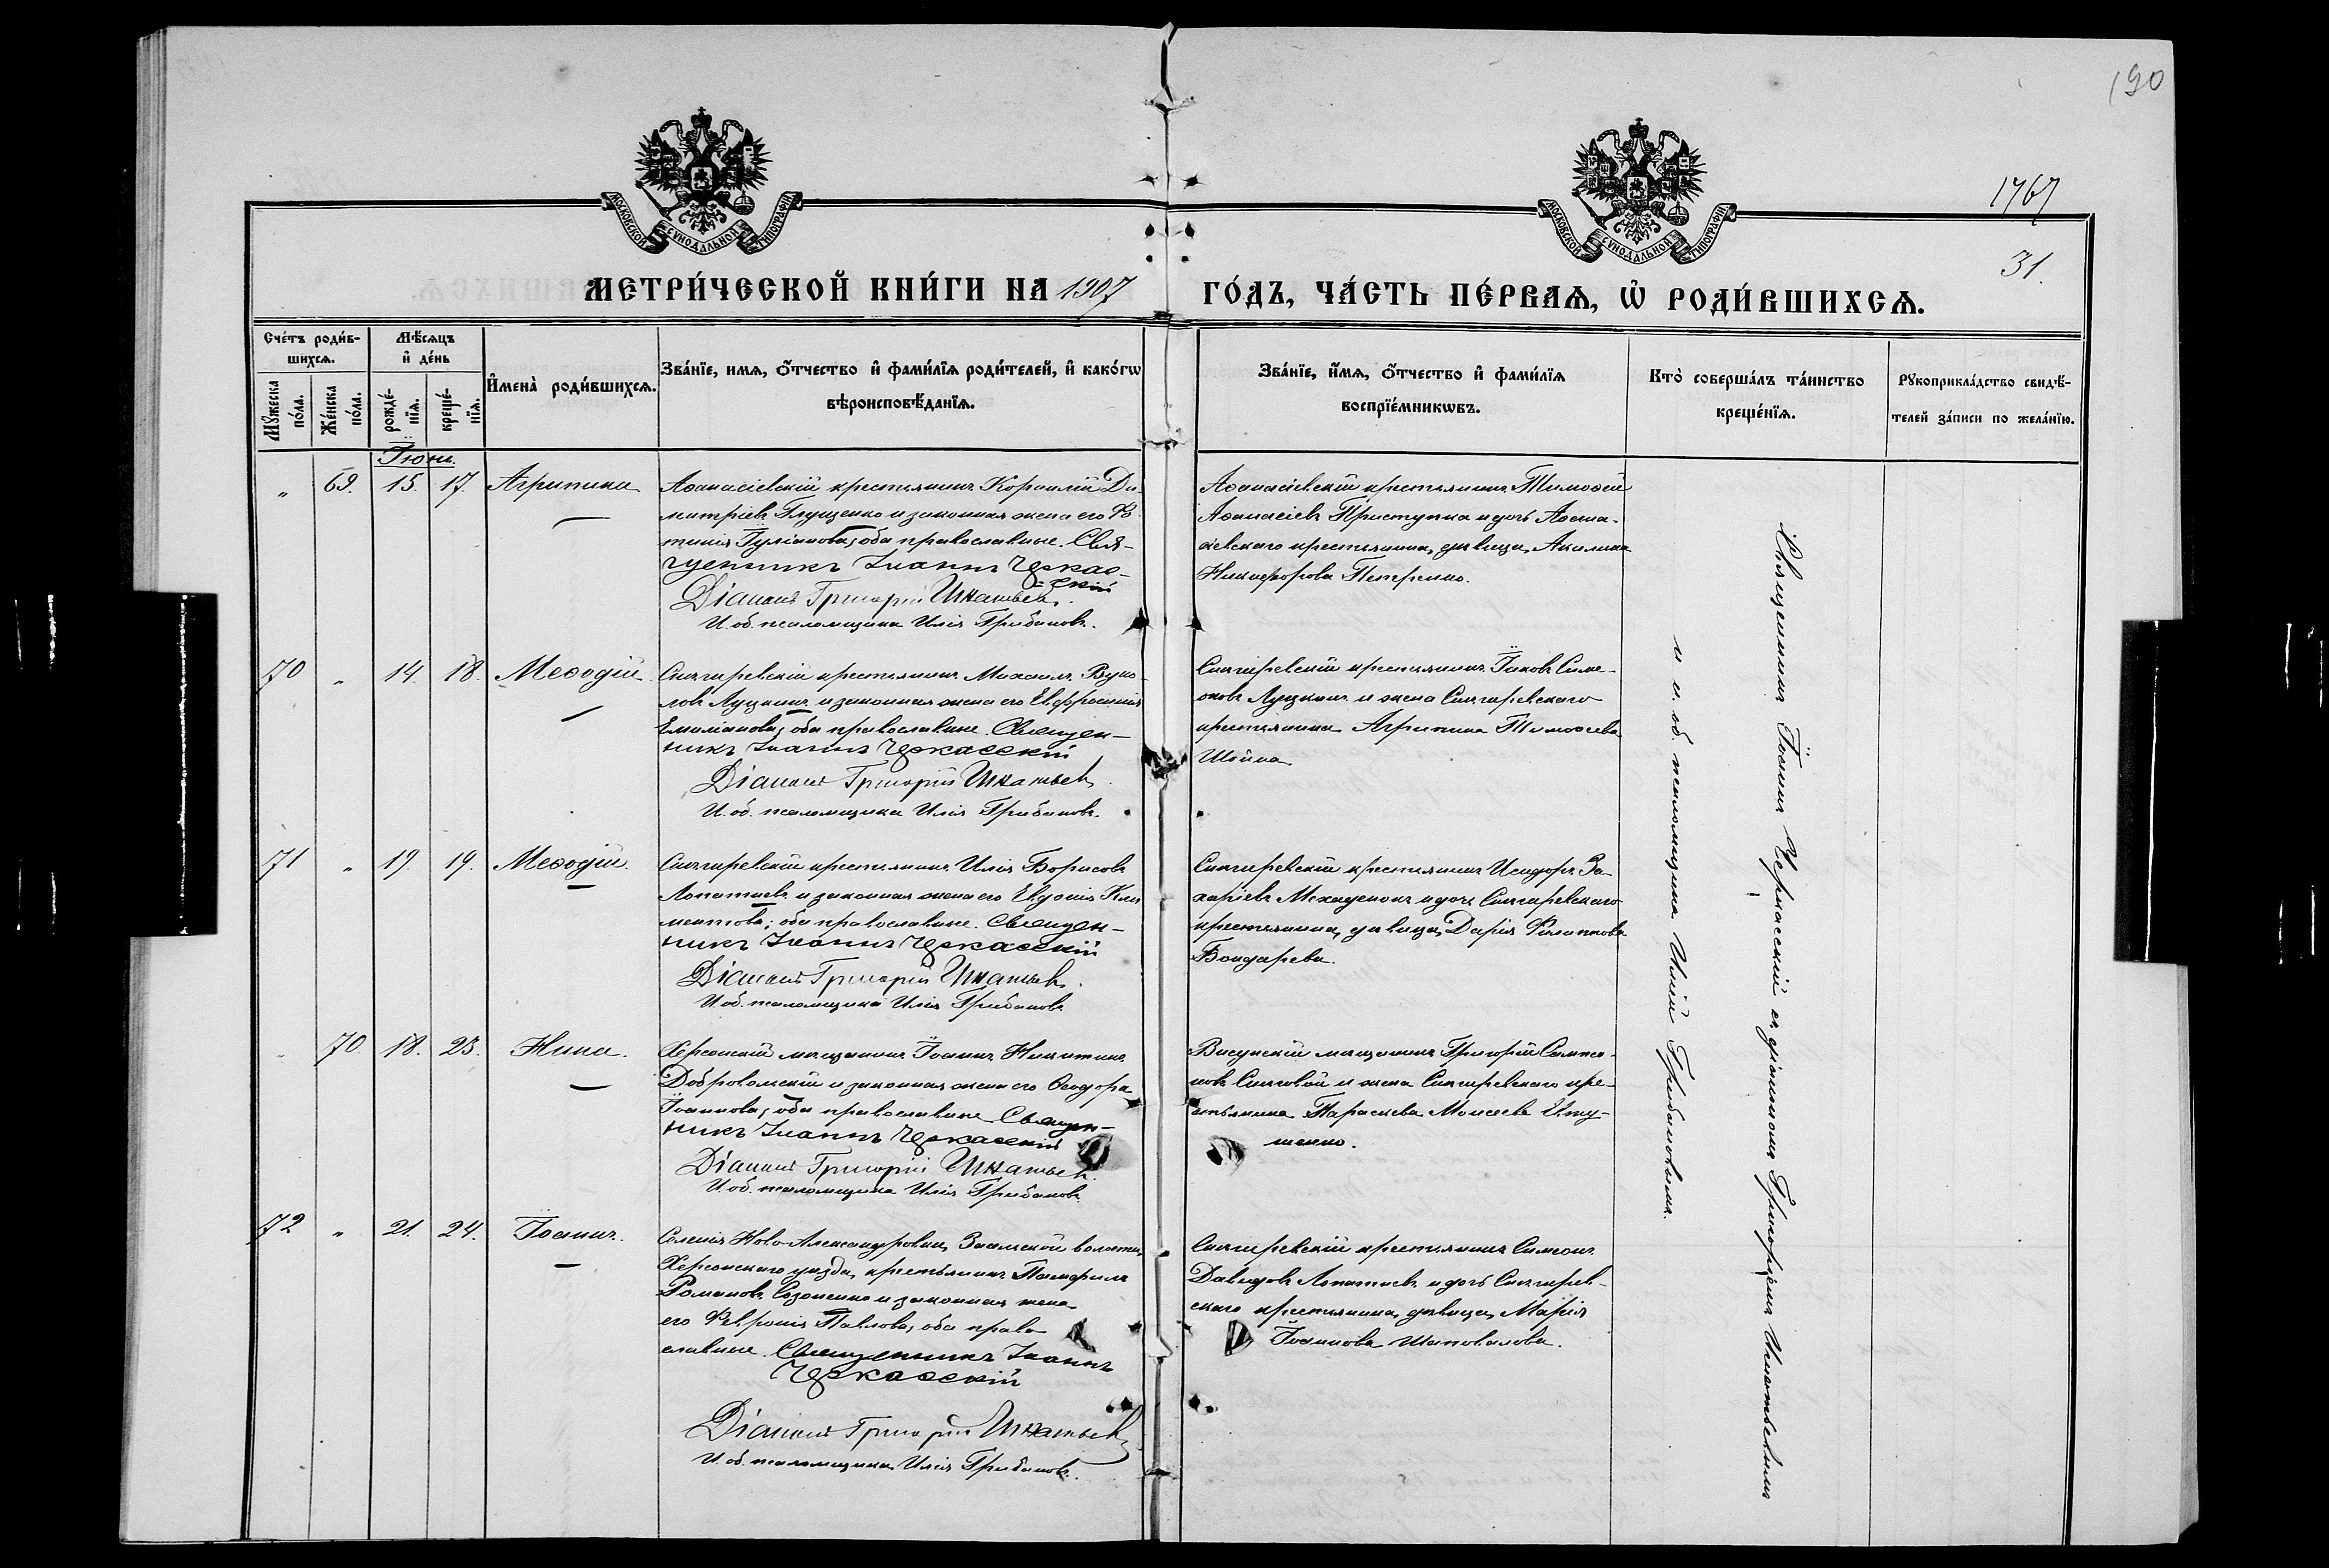 190
1767
31.
МОСКОВСКОЙ СѴНОДАЛЬНОЙ ТИПОГРАФІИ
МОСКОВСКОЙ СѴНОДАЛЬНОЙ ТИПОГРАФІИ
МЕТРИ́ЧЕСКОЙ КНИ́ГИ НА 1907
ГО́ДЪ, ЧА́СТЬ ПЕ́РВАѦ, Ѡ҆ РОДИ́ВШИХСѦ.
Сче́тъ роди́в-
шихсѧ.
Мꙋ́жеска по́ла.
Же́нска по́ла.
Мѣ́сѧцъ
и҆ де́нь
рожде́-нїѧ.
креще́-нїѧ.
И҆мена̀ роди́вшихсѧ.
Зва́нїе, имѧ, ѻ҆́тчество и҆ фами́лїѧ роди́телей, и҆ како́гѡ
вѣроисповѣ́данїѧ.
Зва́нїе, и҆́мѧ, ѻ҆́тчество и҆ фами́лїѧ
воспрїе́мникѡвъ.
Кто̀ соверша́лъ та́инство
креще́нїѧ.
Рꙋкоприкла́дство свидѣ́-
телей за́писи по жела́нїю.
Іюнь.
" 69. 15. 17. Агрипина
Аѳанасіевскій крестьянинъ Корнилій Ди-
митріевъ Глущенко и законная жена его Ѳ
тинія Іуліанова; оба православные. Свя-
щенникъ Іоаннъ Черкас-
скій
Діаконъ Григорій Игнатьевъ.
И. об. псаломщика Илія Грибановъ.
Аѳанасіевскій крестьянинъ Тимоѳей
Аѳанасіевъ Приступка и дочь Аѳана-
сіевскаго крестьянина, девица, Акилина
Никифорова Петренко.
70 " 14. 18. Меѳодій
Снигиревскій крестьянинъ Михаилъ Вуко-
ловъ Луцкинъ и законная жена его Евфросинія
Емиліанова; оба православные. Священ-
никъ Іоаннъ Черкасскій
Діаконъ Григорій Игнатьевъ
И. об. псаломщика Илія Грибановъ.
Снигиревскій крестьянинъ Іаковъ Симе-
оновъ Луцкинъ и жена Снигиревскаго
крестьянина Агрипина Тимоѳеева
71 " 19. 19. Меѳодій.
Снигиревскій крестьянинъ Илія Борисовъ
Лопатиевъ и законная жена его Евдокія Кли
ментова; оба православные. Священ-
никъ Іоаннъ Черкасскій
Діаконъ Григорій Игнатьевъ.
И. об. псаломщика Илія Грибановъ
Снигиревскій крестьянинъ Исидоръ За-
харіевъ и дочь Снигиревскаго
крестьянина, девица, Дарія Филиппова
Бондарева.
" 70. 18. 23. Нина.
Херсонскій мещанинъ Іоаннъ Никитинъ
Добровольскій и законная жена его Ѳеодора
Іоаннова; оба православные Священ-
никъ Іоаннъ Черкасскій
Діаконъ Григорій Игнатьевъ.
И. об. псаломщика Илія Грибановъ
Висунскій мещанинъ Григорій Сампсо-
новъ и жена Снигиревскаго кре-
стьянина Параскева Моисеева
72 " 21. 24. Іоаннъ.
Селенія Ново-Александровки, Засельской волости,
Херсонскаго уезда, крестьянинъ Памфилъ
Романовъ Созоненко и законная жена
его Феvронія Павлова, оба право
славные. Священникъ Іоаннъ
Черкасскій
Діаконъ Григорій Игнатьевъ
И. об. псаломщика Илія Грибановъ.
Снигиревскій крестьянинъ Симеонъ
Давидовъ Лопатиевъ и дочь Снигирев-
скаго крестьянина, девица, Марія
Іоаннова Шаповалова.
Священникъ Іоаннъ Черкасскій съ діакономъ Григоріемъ Игнатьевымъ
и и. об. псаломщика Иліей Грибановымъ.